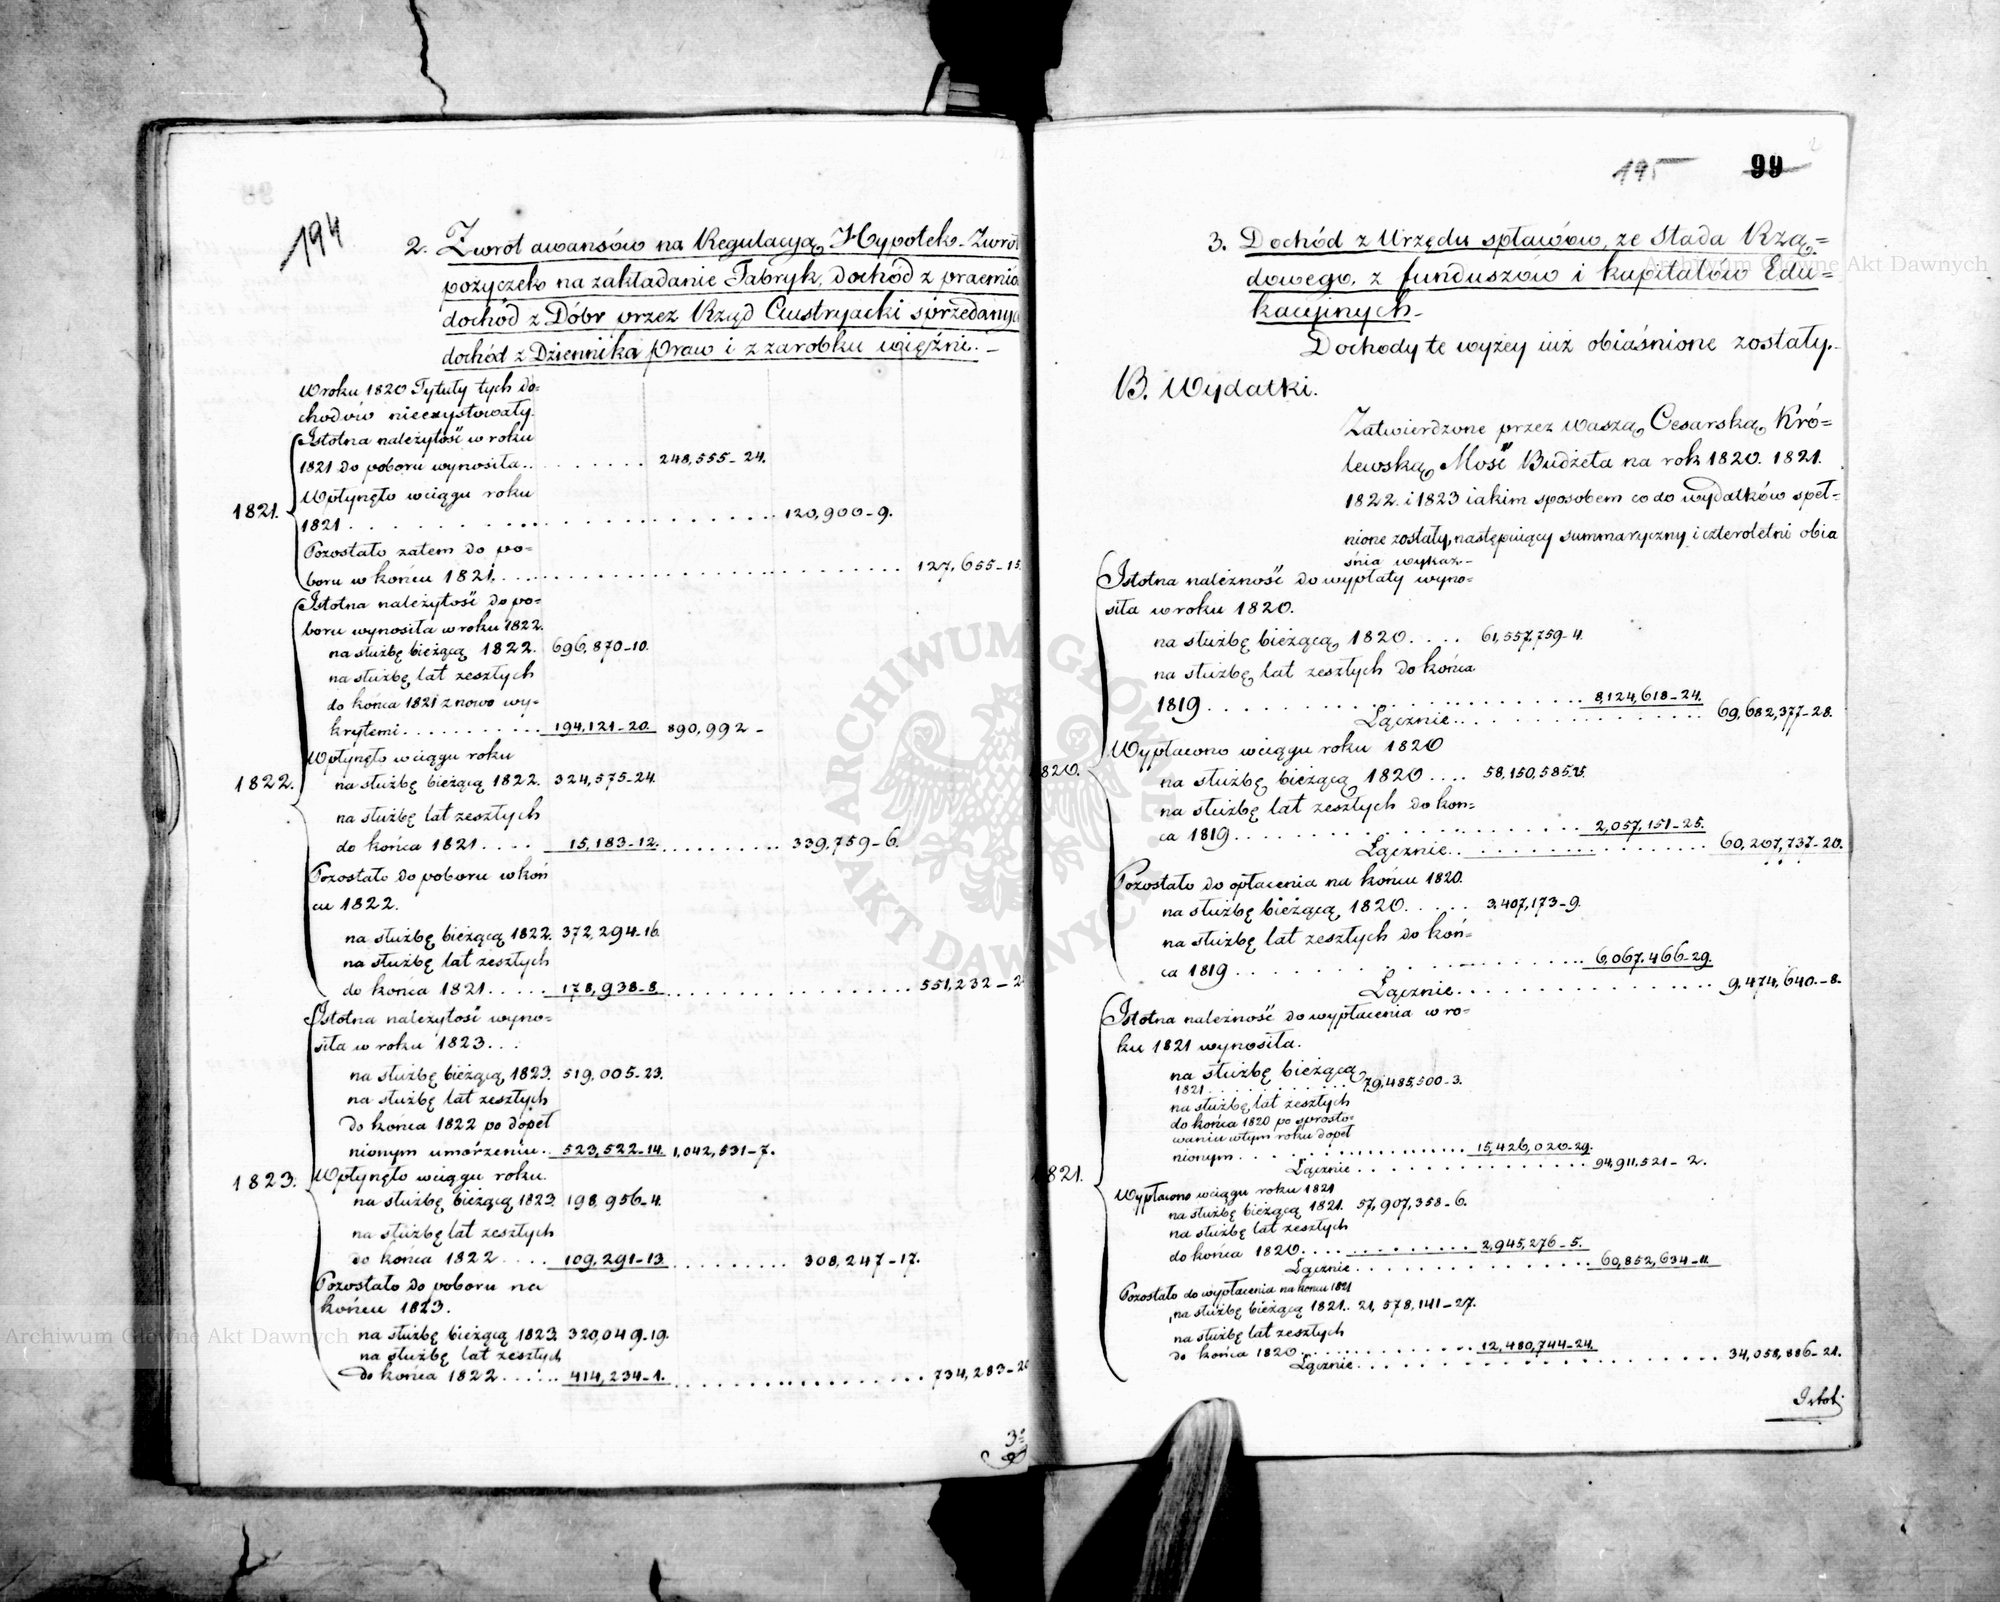 194
2. Zwrot awansów na Regulacyą Hypotek. Zwrot
pożyczek na zakładanie Fabryk, dochód z praemio
dochód z Dóbr przez Rząd Austryacki sprzedanych
dochód z Dziennika Praw i z zarobku więźni.—
W roku 1820 Tytuły tych do=
chodów nieexystowały.
Istotna należytość w roku
1821 do poboru wynosiła.. . . . . . . . 248,555-24.
Wpłynęło wciągu roku
1821. 1821 . . . . . . . . . . . . . . . . 120,900-9.
Pozostało zatem do po=
boru w końcu 1821. . . . . . . . . . . . . . . 127,655-15.
Istotna należytość do po=
boru wynosiła w roku 1822.
na służbę bieżącą 1822. 696,870-10.
na służbę lat zeszłych
do końca 1821 z nowo wy=
krytemi . . . . . . . . . 194,121-20. 890,992 -
Wpłynęło wciągu roku
1822. na służbę bieżącą 1822. 324,575-24.
na służbę lat zeszłych
do końca 1821 . . . . 15,183-12. . . . . . . . . . 339,759-6.
Pozostało do poboru w koń
cu 1822.
na służbę bieżącą 1822. 372,294-16.
na służbę lat zeszłych
do końca 1821. . . . . 178,938-8. . . . . . . . . . . . . . . . 551,232-2
Istotna należytość wyno=
siła w roku 1823. . .
na służbę bieżącą 1823. 519,005-23.
na służbę lat zeszłych
do końca 1822 po dopeł
nionym umorzeniu.. 523,522-14. 1,042,531-7.
1823. Wpłynęło wciągu roku.
na służbę bieżącą 1823. 198,956-4.
na służbę lat zeszłych
do końca 1822 . . . . . 109,291-13. . . . . . . . . . . 308,247-17.
Pozostało do poboru na
końcu 1823.
na służbę bieżącą 1823. 320,049-19.
na służbę lat zeszłych
do końca 1822. . . . . . 414,234-1. . . . . . . . . . . . . . . . . 734,283-20
195 99
3. Dochód z Urzędu spławów, ze Stada Rzą=
dowego, z funduszów i kapitałów Edu=
kacyinych.
Dochody te wyżey iuż obiaśnione zostały.
B. Wydatki.
Zatwierdzone przez Waszą Cesarską Kró=
lewską Mość Budżeta na rok 1820. 1821.
1822. i 1823 iakim sposobem co do wydatków speł=
nione zostały, następuiący summaryczny i czteroletni obia
śnia wykaz.-
Istotna należność do wypłaty wyno=
siła w roku 1820.
na służbę bieżącą 1820. . . . 61,557,759-4.
na służbę lat zeszłych do końca
1819 . . . . . . . . . . . . . . . . . . . . 8,124,618-24.
Łącznie. . . . . . . . . . . . . 69,682,377-28.
Wypłacono wciągu roku 1820
820. na służbę bieżącą 1820 . . . . 58,150,585.25.
na służbę lat zeszłych do koń=
ca 1819 . . . . . . . . . . . . . . . . . . 2,057,151-25.
Łącznie. . . . . . . . . . . . . 60,207,737-20.
Pozostało do opłacenia na końcu 1820.
na służbę bieżącą 1820. . . . . 3,407,173-9.
na służbę lat zeszłych do koń=
ca 1819 . . . . . . . . . . . . . . . . . . 6,067,466-29.
Łącznie. . . . . . . . . . . . . 9,474,640.-8.
Istotna należność do wypłacenia w ro=
ku 1821 wynosiła.
na służbę bieżącą
1821 . . . . . . . . . . 79,485,500-3.
na służbę lat zeszłych
do końca 1820 po sprosto=
waniu w tym roku dopeł
nionym . . . . . . . . . . . . . . . . 15,426,020-29.
Łącznie . . . . . . . . . . . . . . 94,911,521-2.
821. Wypłacono wciągu roku 1821
na służbę bieżącą 1821. 57,907,358-6.
na służbę lat zeszłych
do końca 1820. . . . . . . . . . . . 2,945,276-5.
Łącznie . . . . . . . . . . . . . . 60,852,634-11.
Pozostało do wypłacenia na końcu 1821
na służbę bieżącą 1821.. 21,578,141-27.
na służbę lat zeszłych
do końca 1820. . . . . . . . . . . . 12,480,744-24.
Łącznie . . . . . . . . . . . . . . . . . . . . . . 34,058,886-21.
Istot
Archiwum Główne Akt Dawnych
ARCHIWUM GŁÓWNE AKT DAWNYCH
Archiwum Główne Akt Dawnych